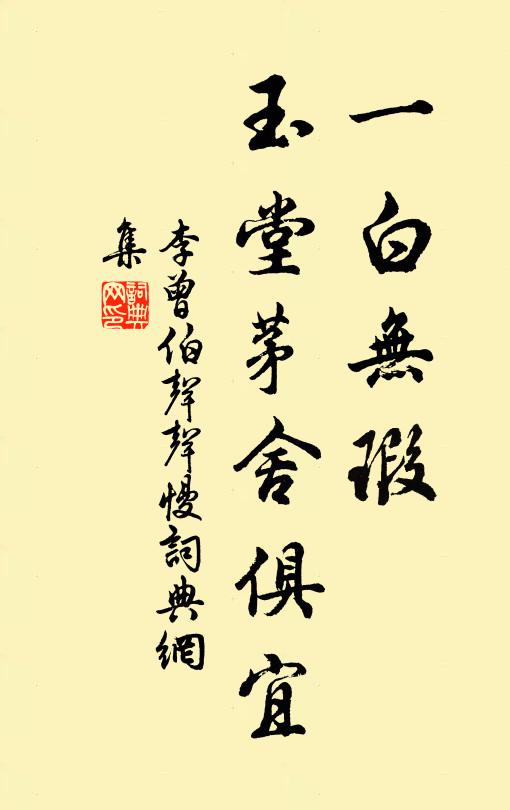 一白無瑕
玉堂茅舍俱宜
李曾伯聲聲慢詞典網
集
詞典
网印